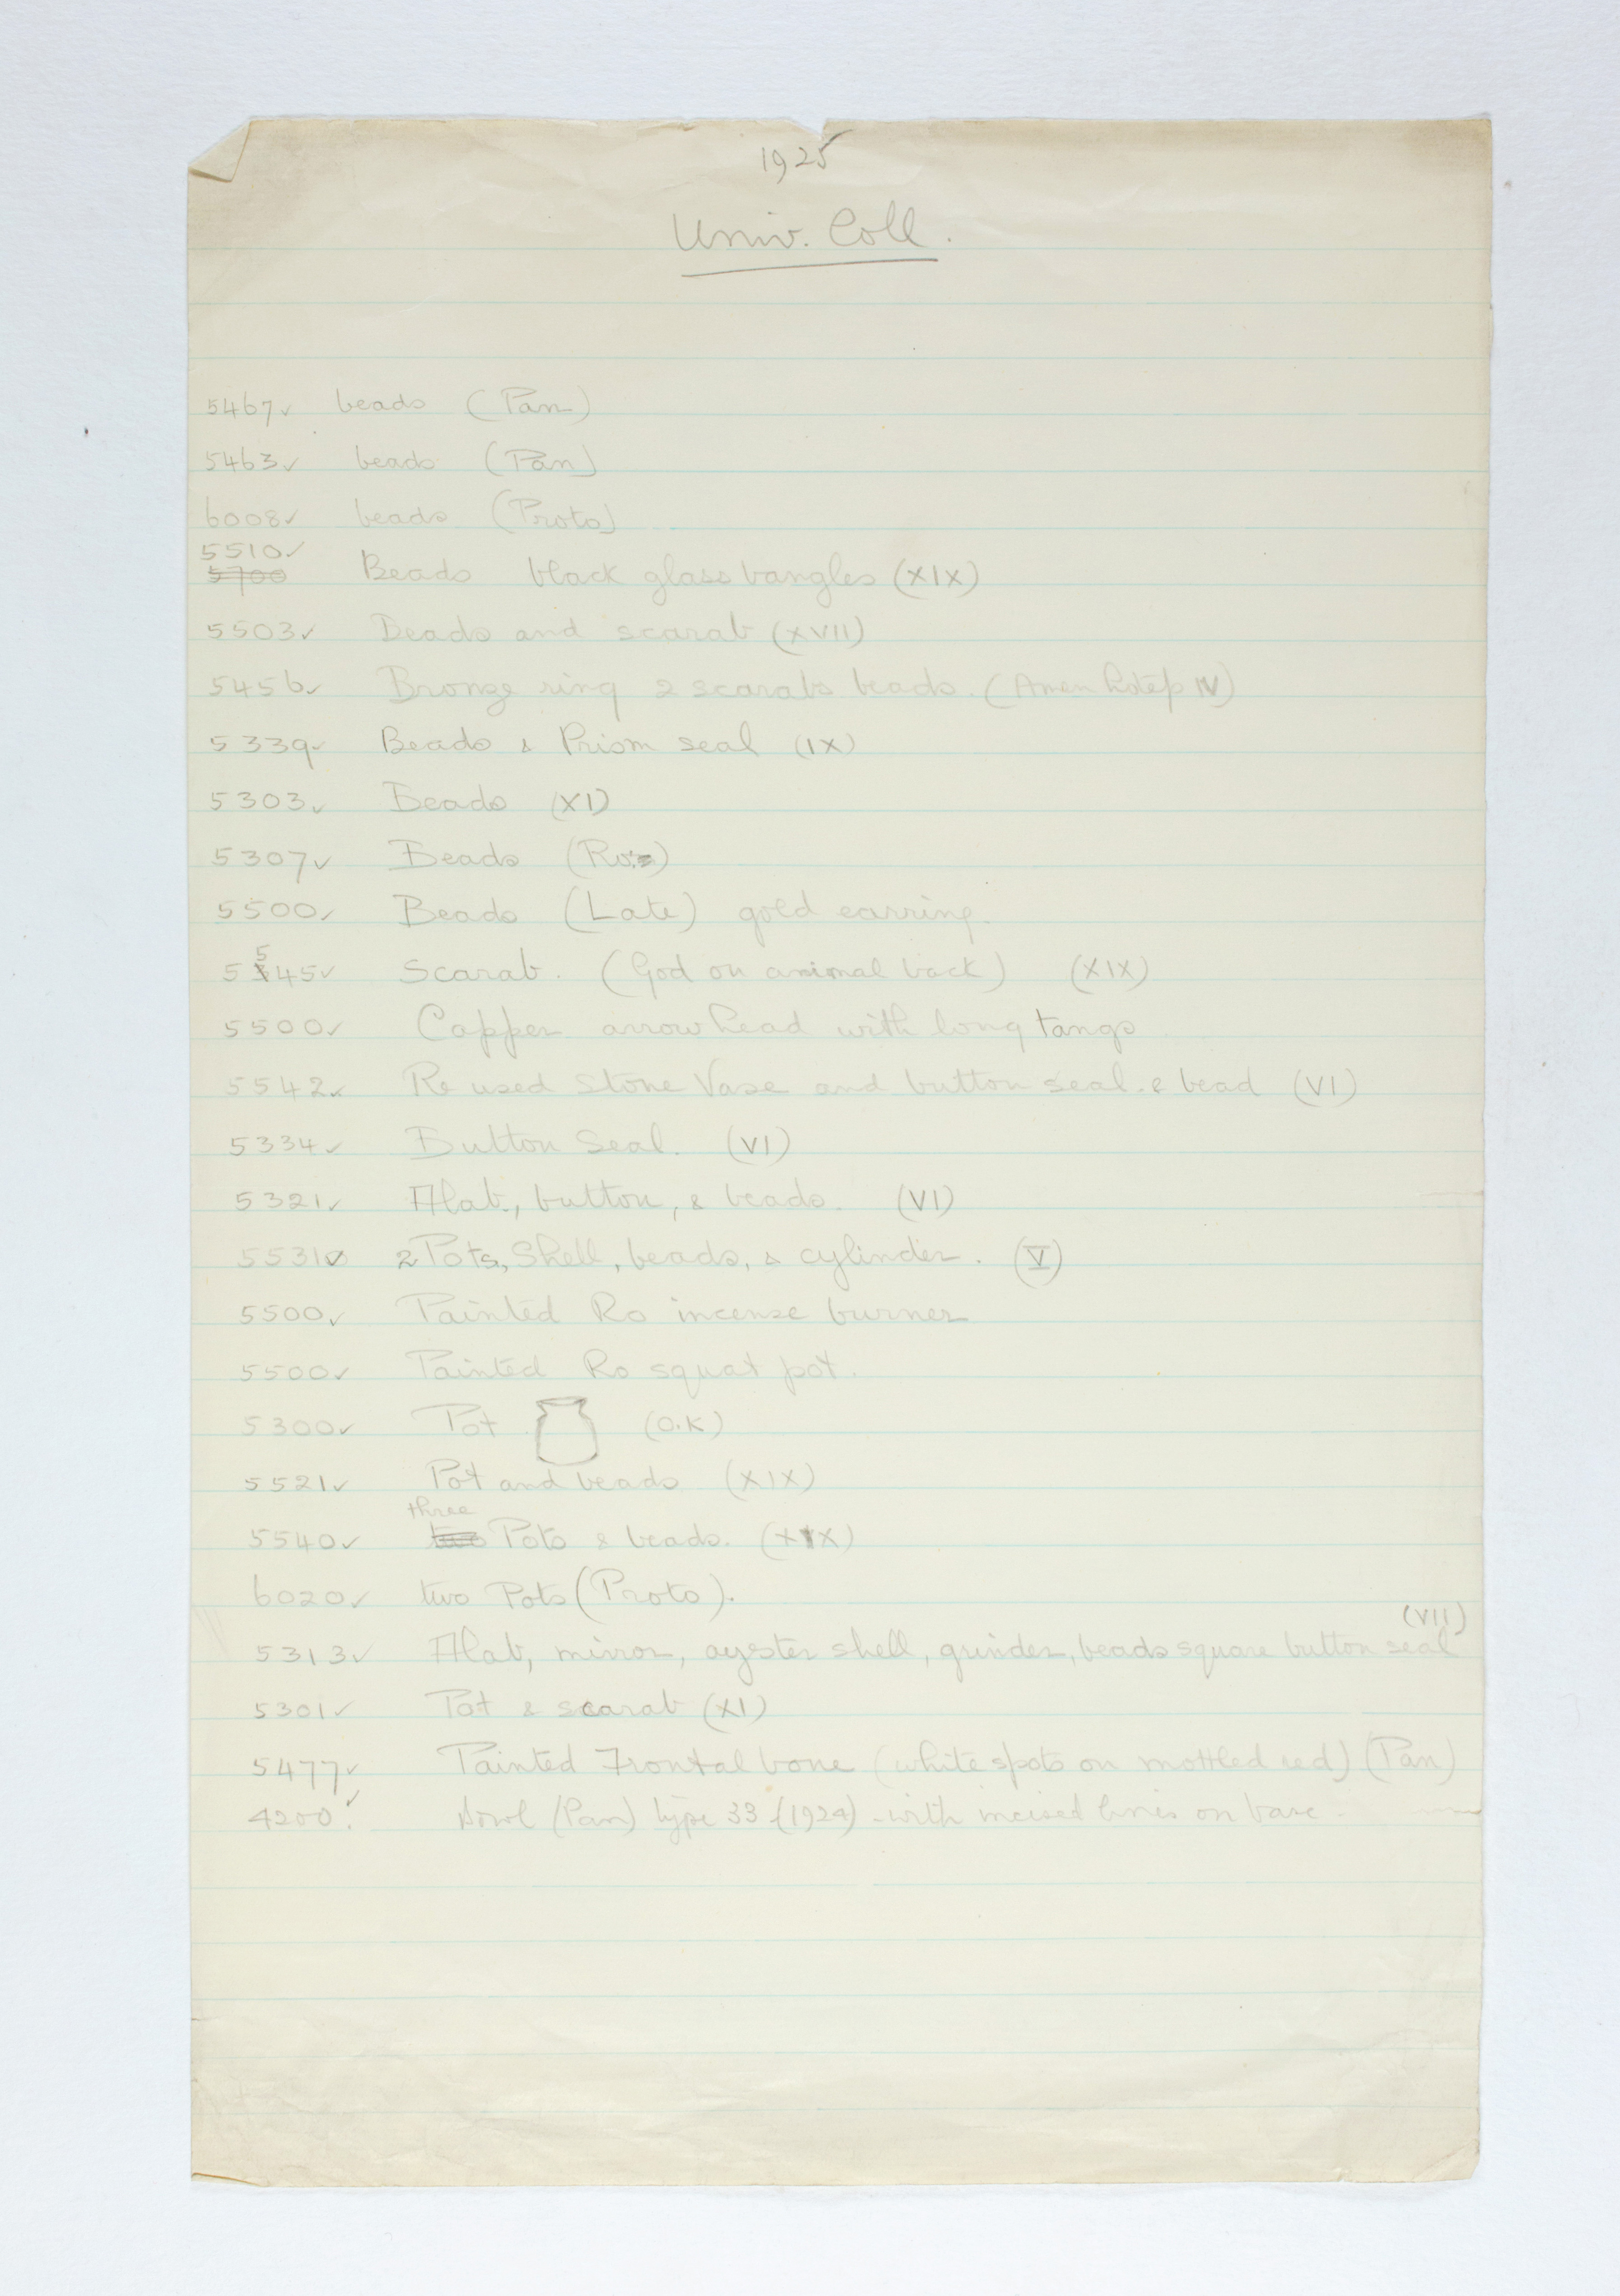 1925
Univ. Coll.
5467✓ beads (Pan)
5463✓ beads (Pan)
6008✓ beads (Proto)
5510✓
5700 Beads black glass bangles (XIX)
5503✓ Beads and scarab (XVII)
5456✓ Bronze ring 2 scarabs beads. (Amenhotep IV)
5339✓ Beads & Prism seal (IX)
5303✓ Beads (XI)
5307✓ Beads (Ro)
5500✓ Beads (Late) gold earring.
5545✓ Scarab. (God on animal back) (XIX)
5500✓ Copper arrow head with long tangs
5542✓ Re used Stone Vase and button seal. & bead (VI)
5334✓ Button Seal. (VI)
5321✓ Alab., button, & beads. (VI)
5531✓ 2 Pots, Shell, beads, & cylinder. (V)
5500✓ Painted Ro incense burner
5500✓ Painted Ro squat pot.
5300✓ Pot (O.K)
5521✓ Pot and beads (XIX)
three
5540✓ two Pots & beads. (XIX)
6020✓ two Pots (Proto).
(VII)
5313✓ Alab, mirror, oyster shell, grinder, beads square button seal
5301✓ Pot & scarab (XI)
5477✓ Painted Frontal bone (white spots on mottled red) (Pan)
4200✓. Bowl (Pan) type 33 (1924) - with incised lines on base -